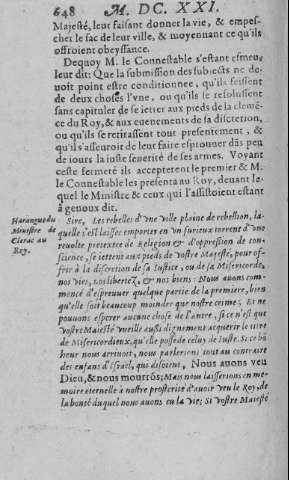 648 M. DC. XXI.
Majesté, leur faisant donner la vie, & empes-
cher le sac de leur ville, & moyennant ce qu'ils
offroient obeyssance.
Dequoy M. le Connestable s'estant esmeu,
leur dit: Que la submission des subiects ne de-
uoit point estre conditionnee, qu'ils feissent
de deux choses l'vne, ou qu'ils se resolussent
sans capituler de se ietter aux pieds de la cleme-
ce du Roy, & aux euenemens de sa discretion,
ou qu'ils se retirassent tout presentement, &
qu'il s'asseuroit de leur faire esprouuer dãs peu
de iours la iuste seuerité de ses armes. Voyant
ceste fermeté ils accepterent le premier & M.
le Connestable les presenta au Roy, deuant le-
quel le Ministre & ceux qui l'assistoient estant
à genoux dit.
Harangue du
Ministre de
Clerac au
Roy.
Sire, Les rebelles d'vne ville pleine de rebellion, la-
quelle s'est laissee emporter en vn furieux torrent d'vne
reuolte pretextee de Religion & d'oppression de con-
science, se iettent aux pieds de vostre Majesté, pour of-
frir à la discretion de sa Iustice, ou de sa Misericorde,
nos vies, nos libertez, & nos biens: Nous auons com-
mencé d'espreuuer quelque partie de la premiere, bien
qu'elle soit beaucoup moindre que nostre crime; Et ne
pouuons esperer aucune chose de l'autre, si ce n'est que
vostre Maiesté vueille aussi dignement acquerir le titre
de Misericordieux, qu'elle possede celuy de Iuste. Si ce bõ
heur nous arriuoit, nous parlerions tout au contraire
des enfans d'Israël, qui disoient, Nous auons veu
Dieu, & nous mourrõs; Mais nous laisserions en me-
moire eternelle à nostre posterité d'auoir veu le Roy, de
la bonté duquel nous auons eu la vie; Si vostre Maiesté